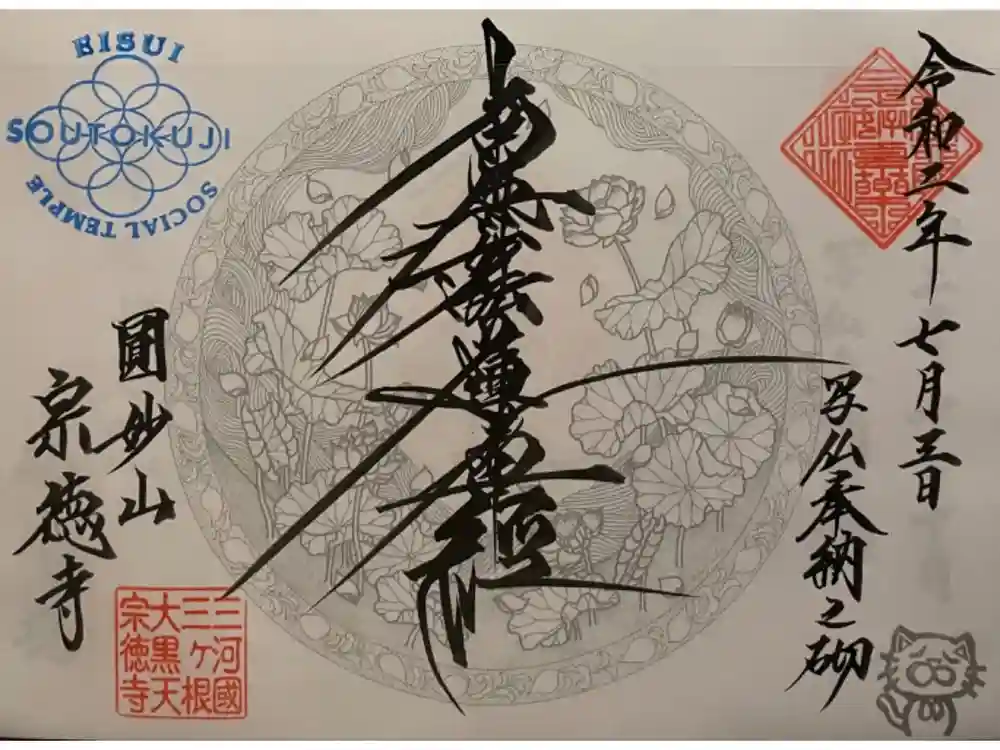 令和二年 七月三日
写仏奉納之砌
南無妙法蓮華経
圓妙山
宗徳寺
三河國
三ヶ根
大黒天
宗徳寺
EISUI
SOUTOKUJI
SOCIAL TEMPLE